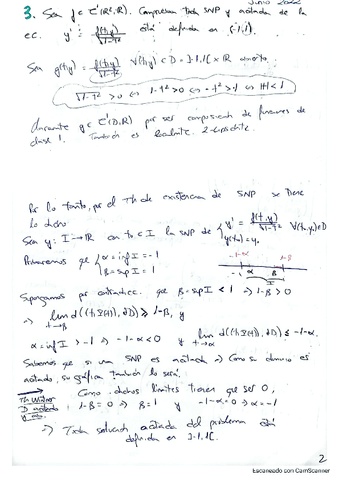 Junio 2022
3. Sea f ∈ C¹(R², R). Comprueba toda SNP y acotada de la
ec. y' = f(t,y)/√(1-t²) está definida en (-1,1).
Sea g(t,y) = f(t,y)/√(1-t²) ∀(t,y) ∈ D = ]-1,1[ × R abierto.
√(1-t²) > 0 ⇔ 1-t² > 0 ⇔ -t² > -1 ⇔ |t| < 1
g ∈ C¹(D,R) por ser composición de funciones de
clase 1. También es localmente 2-lipschitz.
Por lo tanto, por el Th de existencia de SNP x tiene
lo dicho
Sea y: I → R con t₀ ∈ I la SNP de { y' = f(t,y)/√(1-t²) ∀(t,y) ∈ D
y(t₀) = y₀
Probaremos que { α = inf I = -1
β = sup I = 1
-1-α 1-β
-1 α β 1
I
Supongamos por contradicc. que β = sup I < 1 ⇒ 1-β > 0
⇒ lim d((t, y(t)), ∂D) ≥ 1-β, y
t→β
α = inf I > -1 ⇒ -1-α < 0 y lim d((t, y(t)), ∂D) ≤ -1-α,
t→α
Sabemos que si una SNP es acotada ⇒ Como su dominio es
acotado, su gráfica también lo será.
Como dichos límites tienen que ser 0,
D acotado : 1-β = 0 ⇒ β = 1 y -1-α = 0 ⇒ α = -1
⇒ Toda solución acotada del problema está
definida en ]-1,1[.
2
Escaneado con CamScanner